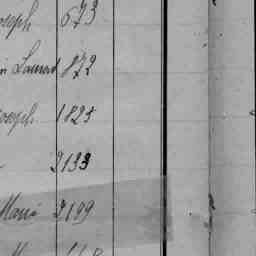 Joseph 673
Laurent 872
Joseph 1825
2133
Marie 2199